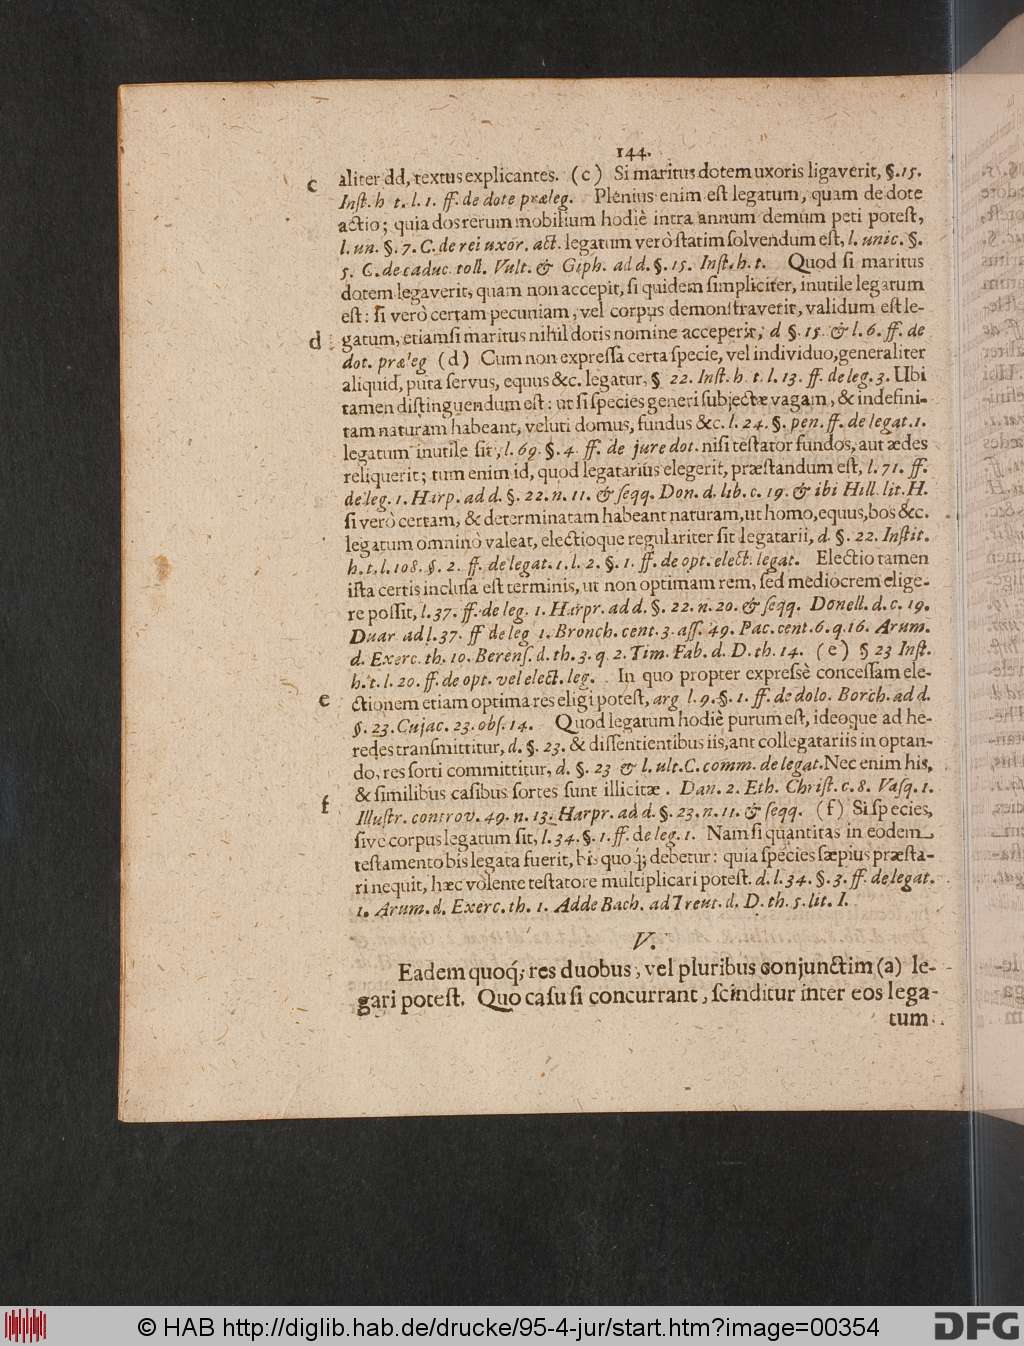 144.
c aliter dd, textus explicantes. (c) Si maritus dotem uxoris ligaverit, §. 15.
Inſt. h t. l. 1. ff. de dote præleg. Plenius enim eſt legatum, quam de dote
actio; quia dos rerum mobilium hodiè intra annum demùm peti poteſt,
l. un. §. 7. C. de rei uxor. act. legatum verò ſtatim ſolvendum eſt, l. unic. §.
5. C. de caduc. toll. Vult. & Giph. ad d. §. 15. Inſt. h. t. Quod ſi maritus
dotem legaverit, quam non accepit, ſi quidem ſimpliciter, inutile legatum
eſt: ſi verò certam pecuniam, vel corpus demonſtraverit, validum eſt le-
d gatum, etiamſi maritus nihil dotis nomine acceperit; d §. 15. & l. 6. ff. de
dot. præleg (d) Cum non expreſſa certa ſpecie, vel individuo, generaliter
aliquid, puta ſervus, equus &c. legatur, § 22. Inſt. h. t. l. 13. ff. de leg. 3. Ubi
tamen diſtinguendum eſt: ut ſi ſpecies generi ſubjectæ vagam, & indefini-
tam naturam habeant, veluti domus, fundus &c. l. 24. §. pen. ff. de legat. 1.
legatum inutile ſit, l. 69. §. 4. ff. de jure dot. niſi teſtator fundos, aut ædes
reliquerit; tum enim id, quod legatarius elegerit, præſtandum eſt, l. 71. ff.
de leg. 1. Harp. ad d. §. 22. n. 11. & ſeqq. Don. d. lib. c. 19. & ibi Hill. lit. H.
ſi verò certam, & determinatam habeant naturam, ut homo, equus, bos &c.
legatum omninò valeat, electioque regulariter ſit legatarii, d. §. 22. Inſtit.
h. t. l. 108. §. 2. ff. de legat. 1. l. 2. §. 1. ff. de opt. elect. legat. Electio tamen
iſta certis incluſa eſt terminis, ut non optimam rem, ſed mediocrem elige-
re poſſit, l. 37. ff. de leg. 1. Harpr. ad d. §. 22. n. 20. & ſeqq. Donell. d. c. 19.
Duar ad l. 37. ff de leg 1. Bronch. cent. 3. aſſ. 49. Pac. cent. 6. q. 16. Arum.
d. Exerc. th. 10. Berenſ. d. th. 3. q. 2. Tim. Fab. d. D. th. 14. (e) § 23 Inſt.
h. t. l. 20. ff. de opt. vel elect. leg. In quo propter expreſſè conceſſam ele-
e ctionem etiam optima res eligi poteſt, arg l. 9. §. 1. ff. de dolo. Borch. ad d.
§. 23. Cujac. 23. obſ. 14. Quod legatum hodiè purum eſt, ideoque ad he-
redes transmittitur, d. §. 23. & diſſentientibus iis, ant collegatariis in optan-
do, res ſorti committitur, d. §. 23 & l. ult. C. comm. de legat. Nec enim his,
& ſimilibus caſibus ſortes ſunt illicitæ. Dan. 2. Eth. Chriſt. c. 8. Vaſq. 1.
f Illuſtr. controv. 49. n. 13. Harpr. ad d. §. 23. n. 11. & ſeqq. (f) Si ſpecies,
ſive corpus legatum ſit, l. 34. §. 1. ff. de leg. 1. Nam ſi quantitas in eodem
teſtamento bis legata fuerit, bis quoq; debetur: quia ſpecies ſæpius præſta-
ri nequit, hæc volente teſtatore multiplicari poteſt. d. l. 34. §. 3. ff. de legat.
1. Arum. d. Exerc. th. 1. Adde Bach. ad Treut. d. D. th. 5. lit. I.
V.
Eadem quoq́; res duobus, vel pluribus conjunctim (a) le-
gari poteſt. Quo caſu ſi concurrant, ſcinditur inter eos lega-
tum
© HAB http://diglib.hab.de/drucke/95-4-jur/start.htm?image=00354
DFG